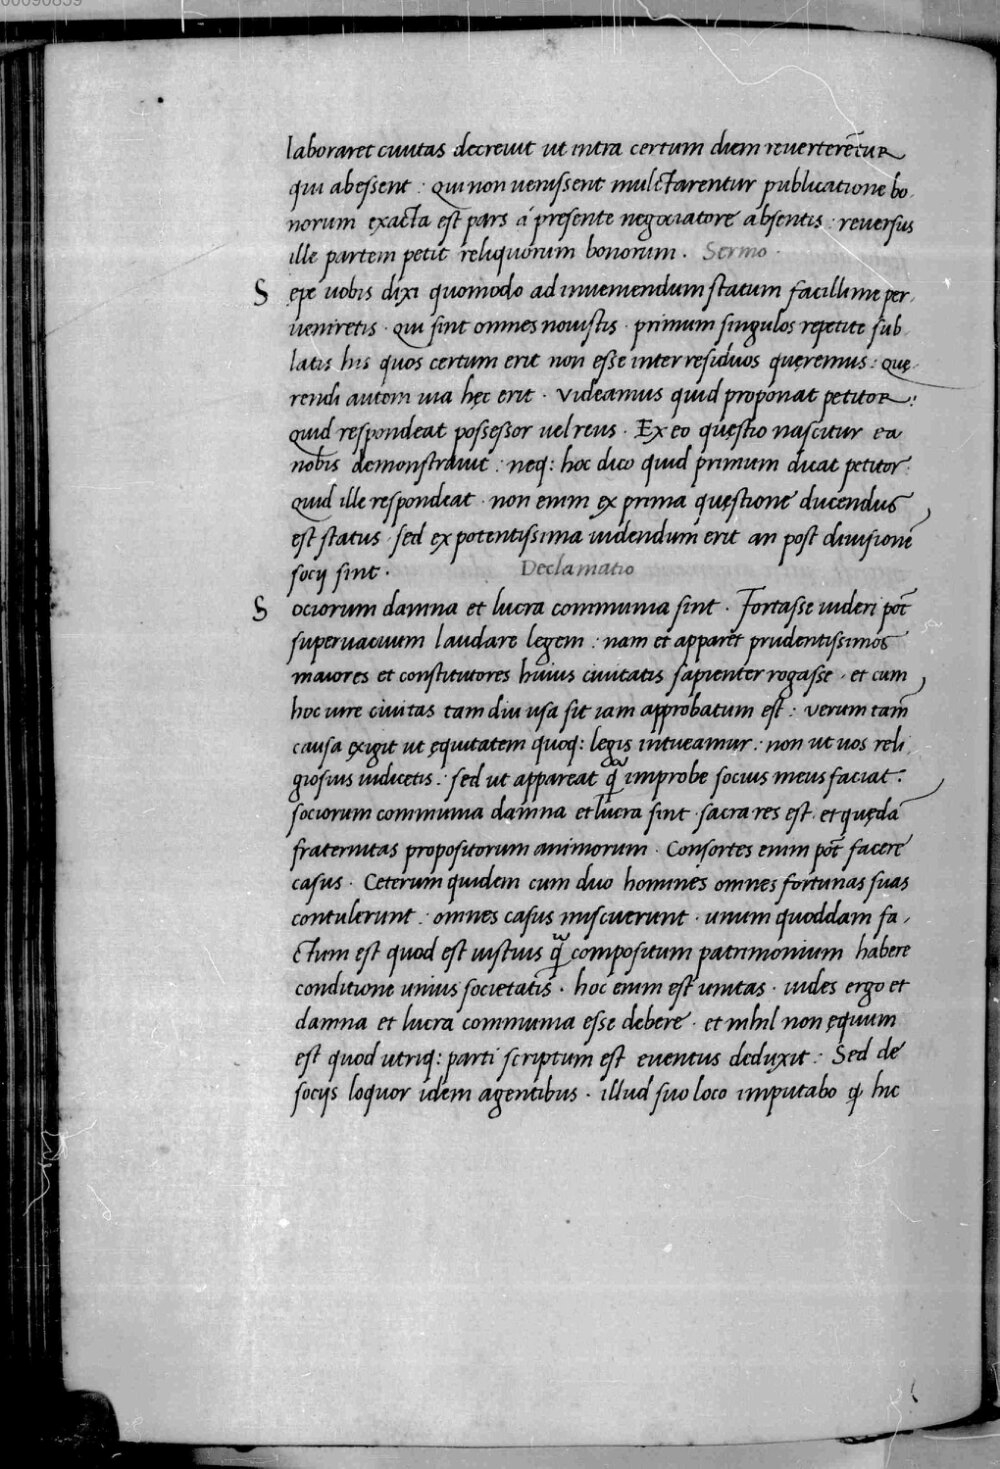 00090859
laboraret ciuitas decreuit ut intra certum diem reuerterẽtur
qui abessent : Qui non uenissent mulctarentur publicatione bo
norum exacta est pars á presente negociatore absentis : reuersus
ille partem petit reliquorum bonorum . Sermo .
S ępe uobis dixi quomodo ad inueniendum statum facillime per,
ueniretis . qui sint omnes nouistis . primum singulos repetite sub
latis his quos certum erit non esse inter residuos quęremus : Quę
rendi autem uia hęc erit . Videamus quid proponat petitor :
quid respondeat possessor uel reus . Ex eo quęstio nascitur ea
nobis demonstrauit : neq: hoc dico quid primum dicat petitor
Quid ille respondeat . non enim ex prima quęstione ducendus
est status . sed ex potentissima uidendum erit an post diuisionẽ
socij sint . Declamatio
S ociorum damna et lucra communia sint . Fortasse uideri põt
superuacuum laudare legem : nam et apparet prudentissimos
maiores et constitutores huius ciuitatis sapienter rogasse , et cum
hoc iure ciuitas tam diu usa sit iam approbatum est : verum tam̃
causa ęxigit ut ęquitatem quoq: legis intueamur : non ut uos reli,
giosius iudicetis : sed ut appareat q̃ improbe socius meus faciat :
sociorum communia damna et lucra sint . sacra res est . et quędã
fraternitas propositorum animorum . Consortes enim põt facere
casus . Ceterum quidem cum duo homines omnes fortunas suas
contulerunt : omnes casus miscuerunt . unum quoddam fa,
ctum est quod est iustius q̃ compositum patrimonium habere
conditione unius societatis . hoc enim est unitas . uides ergo et
damna et lucra communia esse debere . et nihil non ęquum
est quod utriq: parti scriptum est euentus deduxit : Sed de
socijs loquor idem agentibus . illud suo loco imputabo ꝙ hic